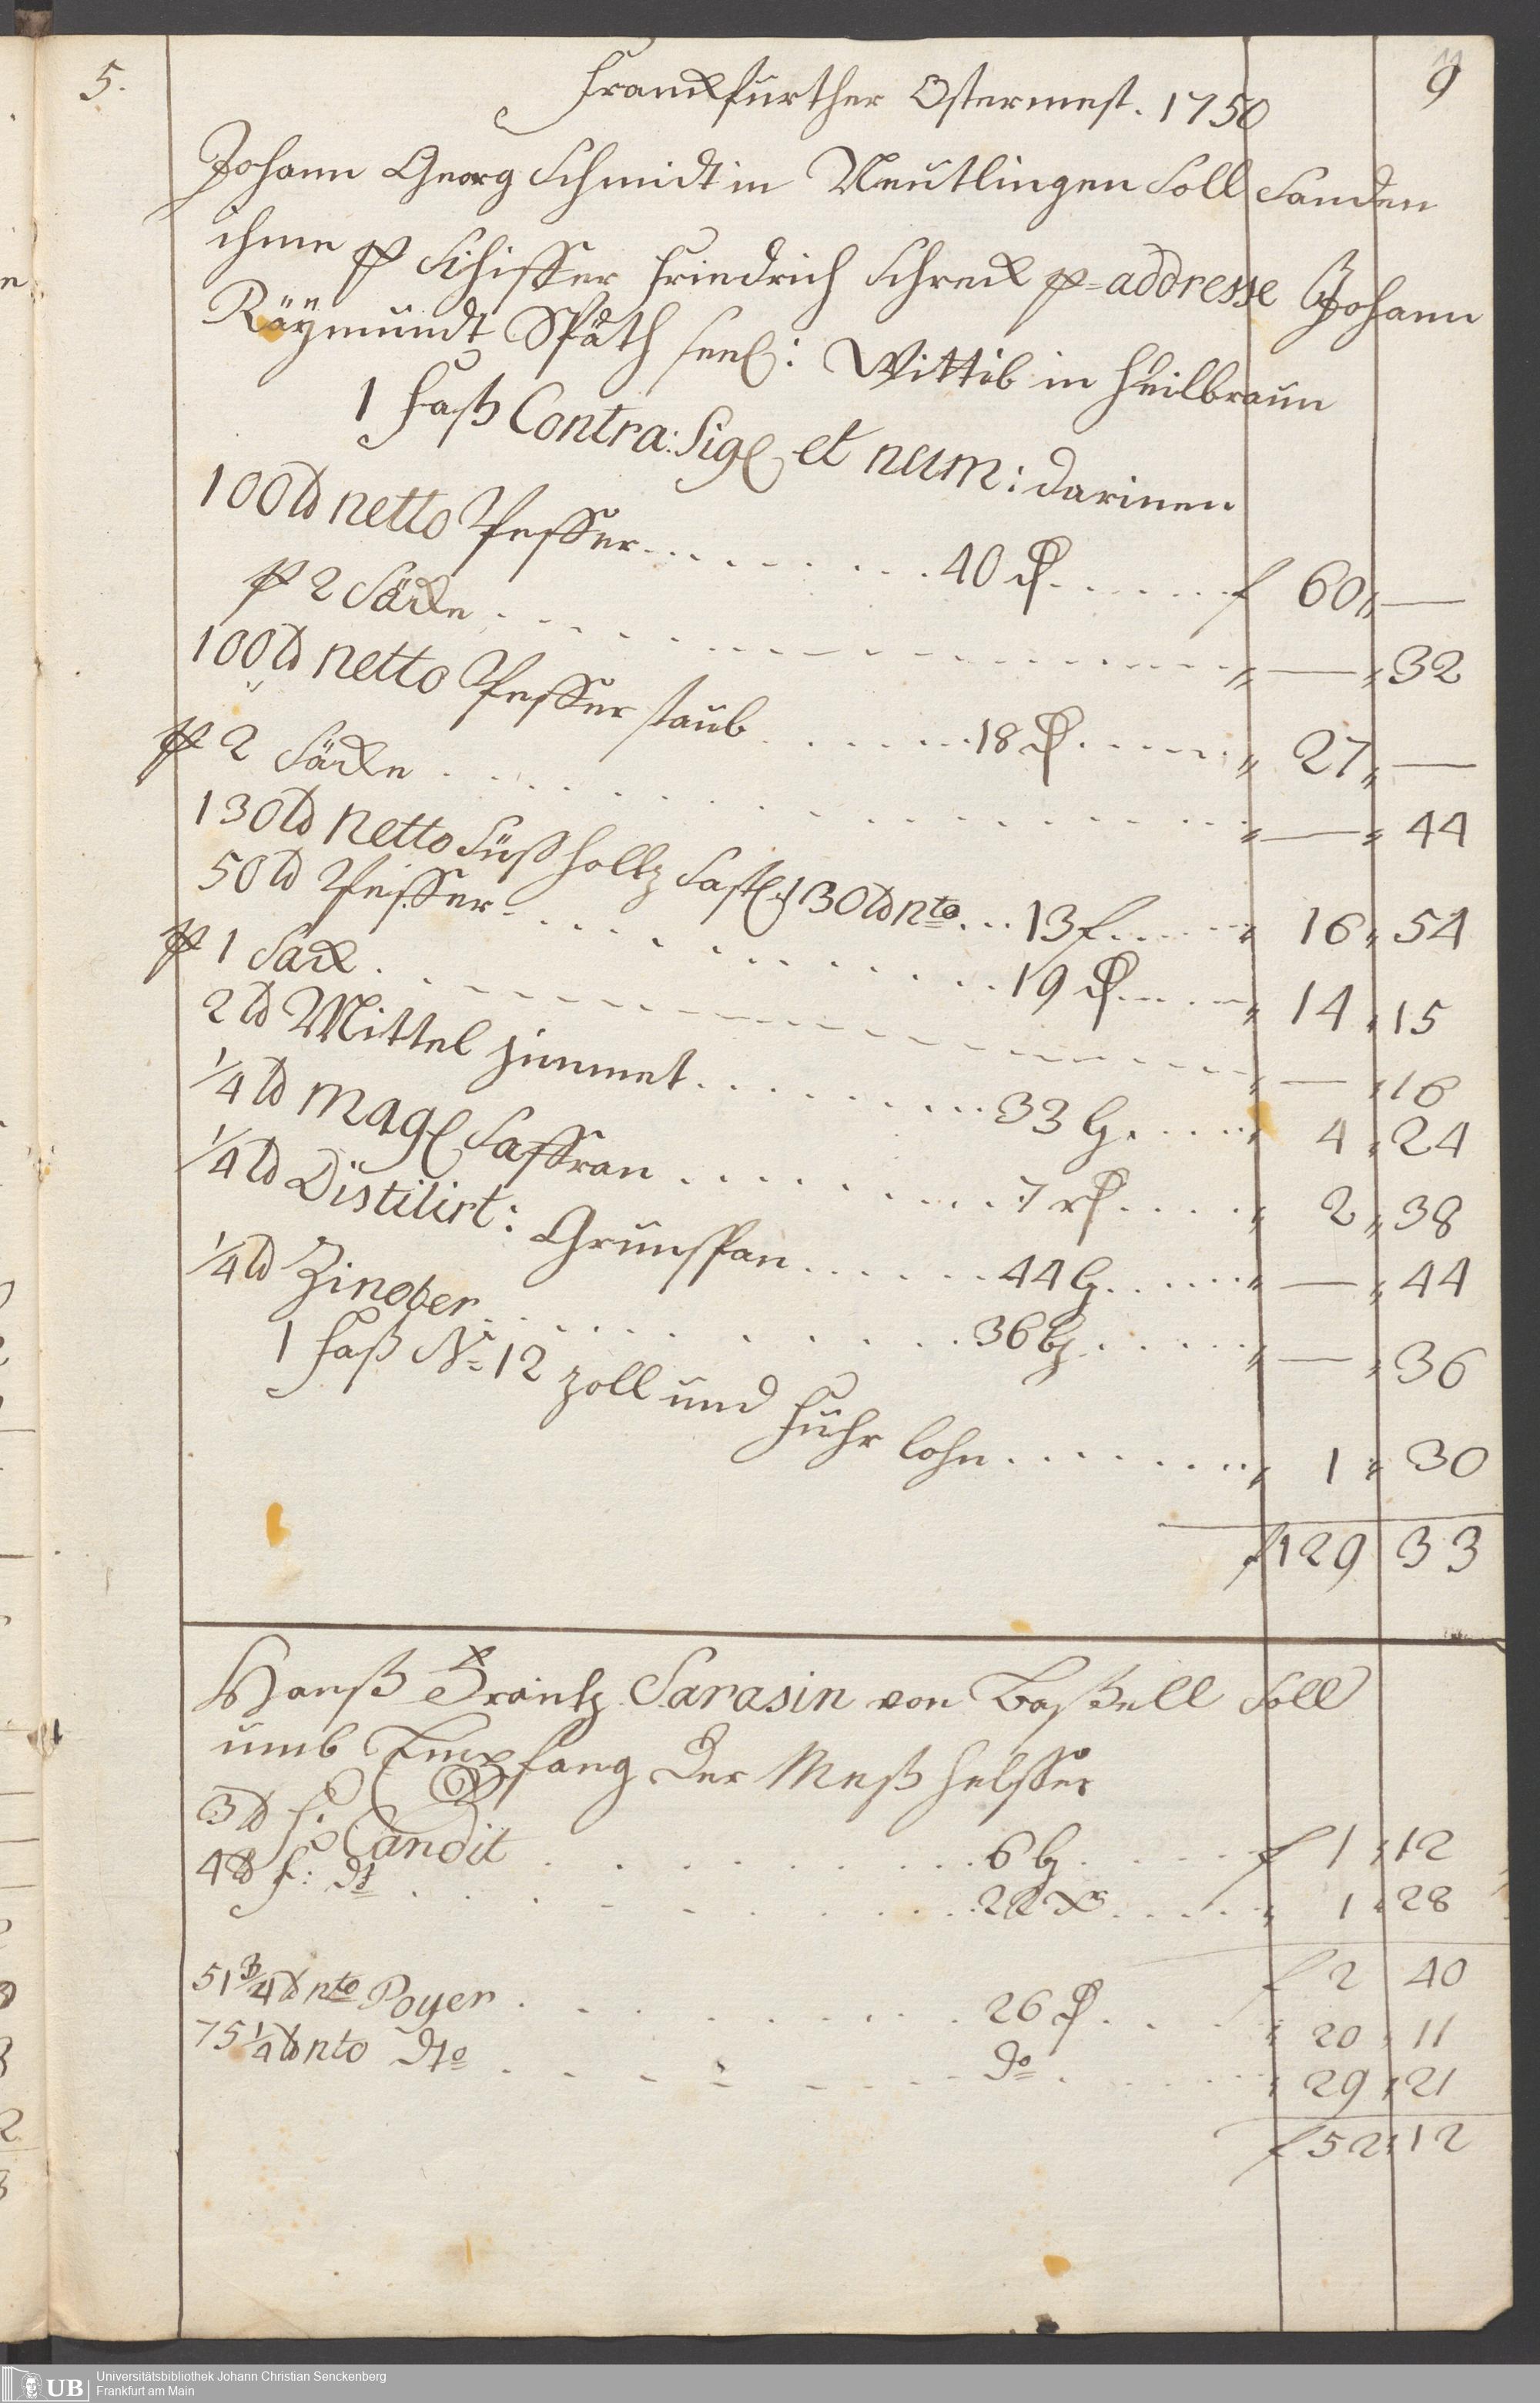 5.
9
Franckfurther Ostermess. 1750
Johann Georg Schmidt in Reutlingen Soll Sanden
ihme p Schiffer Friedrich Schreck p = addresse Johann
Räÿmundt Späth seel: Wittib in Heilbraun
1 Fass Contra: Sig et num: darinen
100 ℔ netto Pfeffer . . . . . . . 40 . . . . . f 60 „ —
p 2 Säcke . . . . . . . „ — „ 32
100 ℔ netto Pfeffer staub . . . . . . 18 . . . . . „ 27 „ —
p 2 Säcke . . . . . . . „ — „ 44
130 ℔ netto Süssholtz Safft 130 ℔ nto . . . 13 f . . . . . „ 16 „ 54
50 ℔ Pfeffer . . . . . . . 19 . . . . . „ 14 „ 15
p 1 Sack . . . . . . . „ — „ 16
2 ℔ Mittel zimmet . . . . . . . 33 . . . . . „ 4 „ 24
1/4 ℔ Mag Saffran . . . . . . . 7 . . . . „ 2 „ 38
1/4 ℔ Distilirt: Grünspan . . . . . . 44 . . . . . „ — „ 44
1/4 ℔ Zinober . . . . . . . 36 bz . . . . . „ — „ 36
1 Fass No 12 zoll und Fuhr lohn . . . . . . . „ 1 „ 30
f 129 33
Hanß Frantz Sarasin von Baßell Soll
umb Empfang der Meß helffer
3 ℔ f. Candit . . . . . . . 6 bz . . . . f 1 „ 12
4 ℔ f: do . . . . . . . 22 xr . . . . „ 1 „ 28
f 2 40
51 3/4 ℔ nto Poyer . . . . . . . 26 . . . „ 20 „ 11
75 1/4 ℔ nto dto . . . . . . . do . . . . „ 29 „ 21
f 52 „ 12
UB
Universitätsbibliothek Johann Christian Senckenberg
Frankfurt am Main